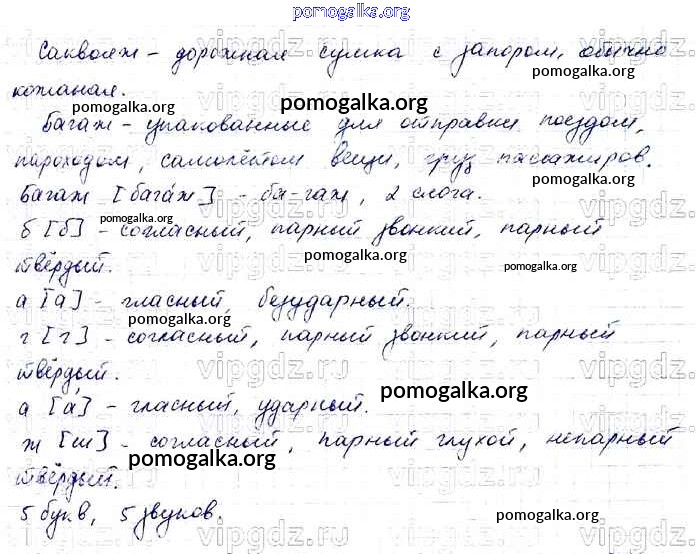 pomogalka.org
Саквояж - дорожная сумка с запором, обычно
pomogalka.org
кожаная.
pomogalka.org pomogalka.org
Багаж - упакованные для отправки поездом,
пароходом, самолётом вещи, груз пассажиров.
pomogalka.org
Багаж [бага́ж] - ба-гаж, 2 слога.
pomogalka.org
б [б] - согласный, парный звонкий, парный
pomogalka.org
твёрдый.
pomogalka.org
а [а] - гласный, безударный.
pomogalka.org
г [г] - согласный, парный звонкий, парный
твёрдый.
pomogalka.org
а [а́] - гласный, ударный.
ж [ш] - согласный, парный глухой, непарный
pomogalka.org
твёрдый.
5 букв, 5 звуков.
pomogalka.org
vipgdz.ru